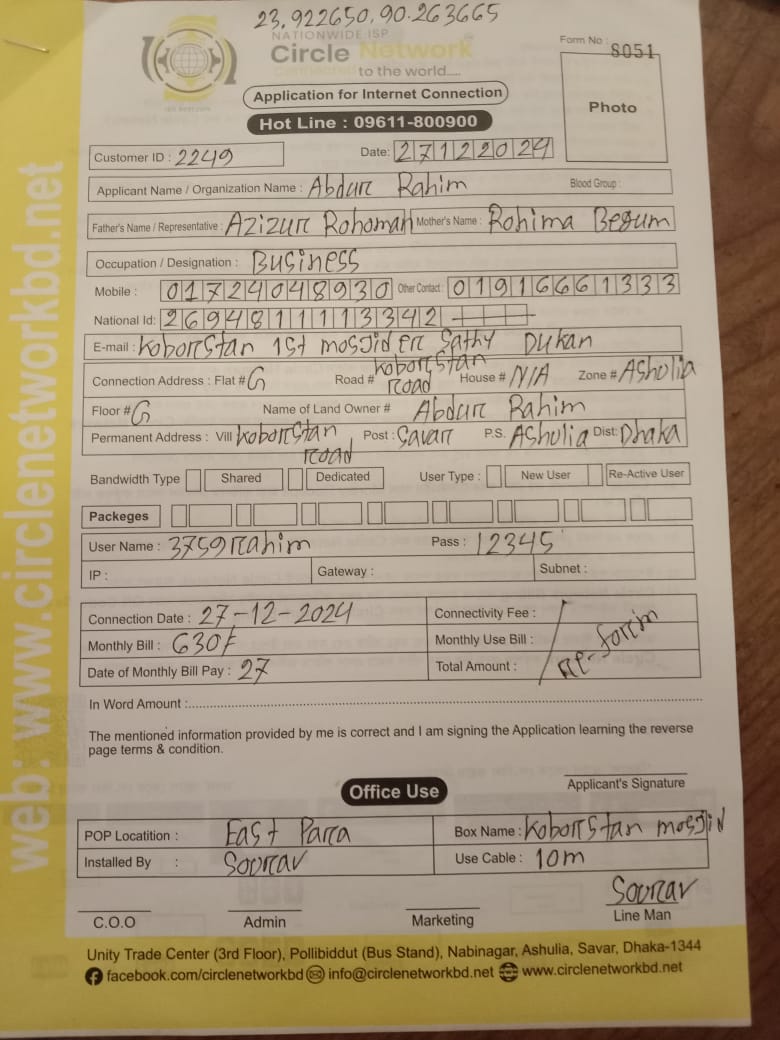 23.922650, 90.263665
NATIONWIDE ISP
Circle Network
Connected to the world.....
Form No : 8051
Application for Internet Connection
Photo
Hot Line : 09611-800900
Customer ID : 2249 Date: 27122024
Applicant Name / Organization Name : Abdur Rahim Blood Group :
Father's Name / Representative : Azizur Rohoman Mother's Name : Rohima Begum
Occupation / Designation : Business
Mobile : 01724048930 Other Contact : 01916661333
National Id: 2694811113342
E-mail : koborstan 1st mosjider sathy Dukan
Connection Address : Flat # G Road # koborstan road House # N/A Zone # Asholia
Floor # G Name of Land Owner # Abdur Rahim
Permanent Address : Vill koborstan road Post : Savar P.S. Asholia Dist: Dhaka
Bandwidth Type Shared Dedicated User Type : New User Re-Active User
Packeges
User Name : 3759rahim Pass : 12345
IP : Gateway : Subnet :
Connection Date : 27-12-2024 Connectivity Fee :
Monthly Bill : 630/- Monthly Use Bill : re-form
Date of Monthly Bill Pay : 27 Total Amount :
In Word Amount :
The mentioned information provided by me is correct and I am signing the Application learning the reverse
page terms & condition.
Applicant's Signature
Office Use
POP Locatition : East Para Box Name : koborstan mosjid
Installed By : Soorav Use Cable : 10m
Soorav
C.O.O Admin Marketing Line Man
Unity Trade Center (3rd Floor), Pollibiddut (Bus Stand), Nabinagar, Ashulia, Savar, Dhaka-1344
facebook.com/circlenetworkbd info@circlenetworkbd.net www.circlenetworkbd.net
web: www.circlenetworkbd.net